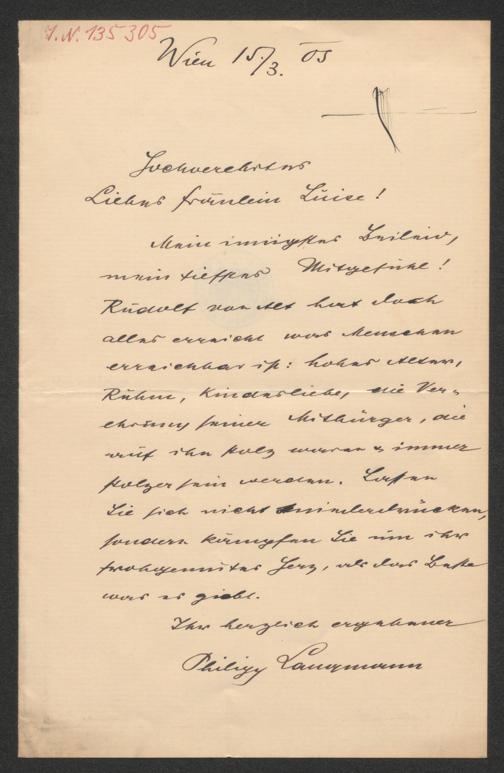 J.N. 135305
Wien 15./3. 05
Hochverehrtes
Liebes Fräulein Luise!
Mein innigstes Beileid,
mein tiefstes Mitgefühl!
Rudolf von Alt hat doch
alles erreicht was Menschen
erreichbar ist: hohes Alter,
Ruhm, Kindesliebe, die Ver-
ehrung seiner Mitbürger, die
auf ihn stolz waren & immer
stolzer sein werden. Lassen
Sie sich nicht niederdrücken,
sondern kämpfen Sie um ihr
frohgemutes Herz, als das Beste
was es giebt.
Ihr herzlich ergebener
Philipp Langmann